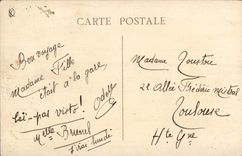 CARTE POSTALE
Bon voyage
Madame Fille
était à la gare
pas visto!
Odette
Mlle Brunel
irai lundi
Madame Toustou
22 Allée Frédéric Mistral
Toulouse
Hte Gne